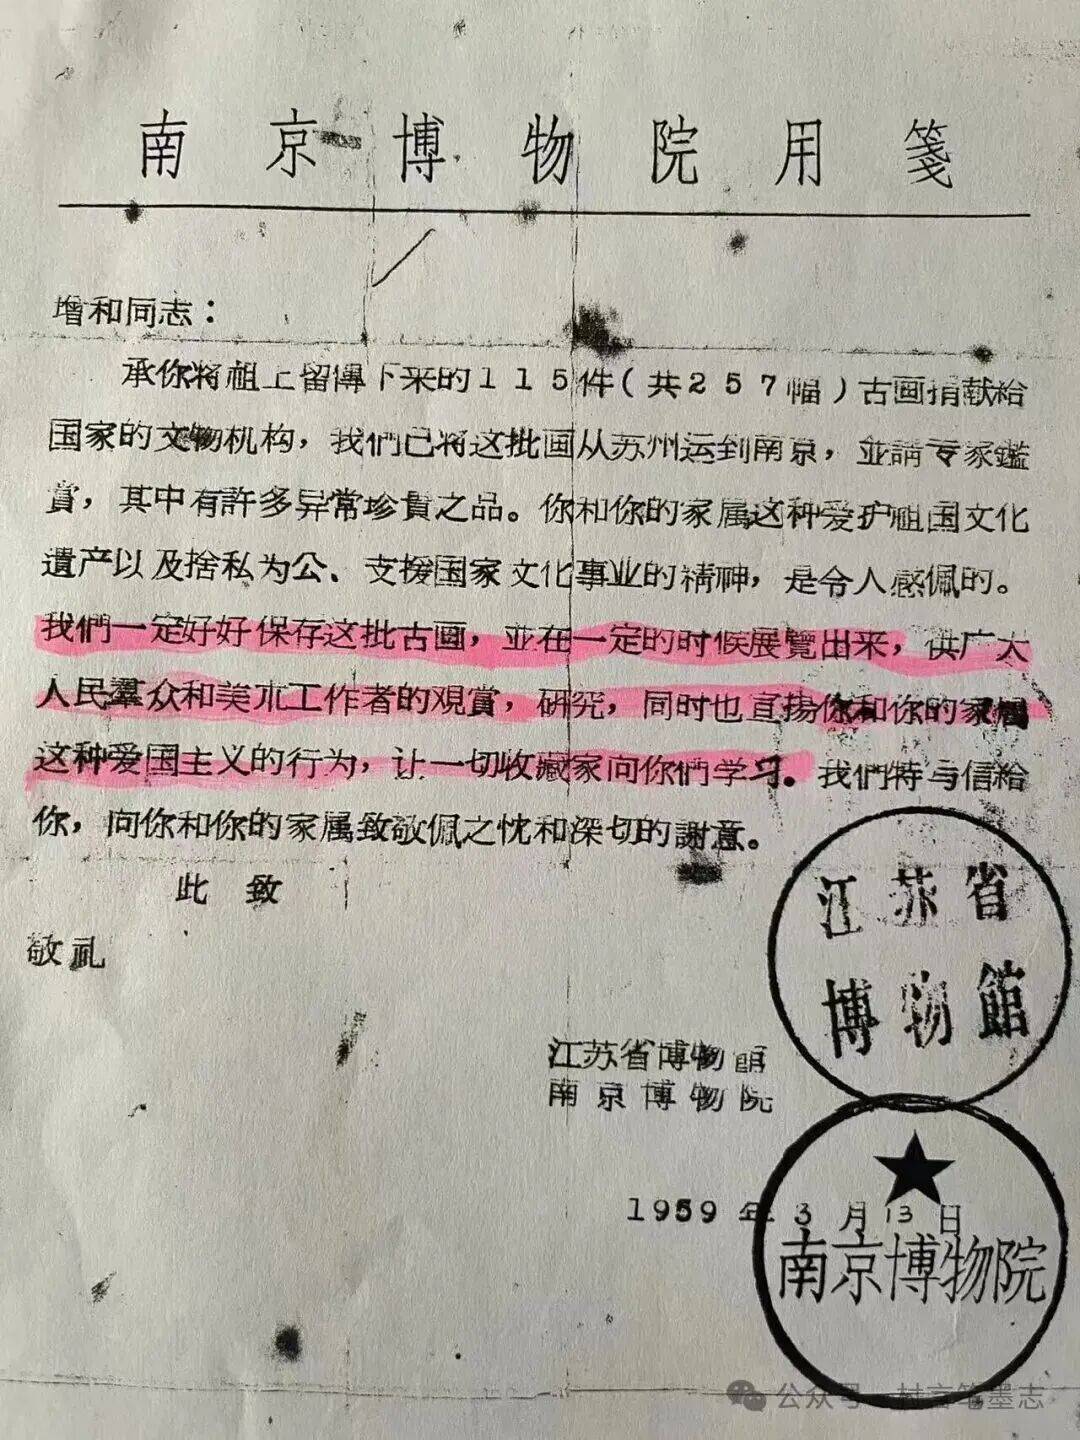 南京博物院用箋
增和同志：
承你将祖上留傳下来的115件（共257幅）古画捐献給
国家的文物机构，我們已将这批画从苏州运到南京，並請专家鑑
賞，其中有許多异常珍貴之品。你和你的家属这种爱护祖国文化
遺产以及捨私为公、支援国家文化事业的精神，是令人感佩的。
我們一定好好保存这批古画，並在一定的时候展覽出来，供广大
人民羣众和美朮工作者的观賞，研究，同时也宣揚你和你的家属
这种爱国主义的行为，让一切收藏家向你們学习。我們特与信給
你，向你和你的家属致敬佩之忱和深切的謝意。
此致
敬礼
江苏省
博物館
江苏省博物館
南京博物院
1959年3月13日
南京博物院
公众号·村言笔墨志